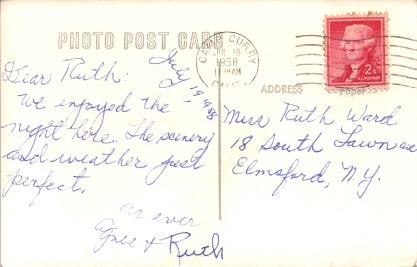 PHOTO POST CARD
CAMP CURRY
JUL 19
1958
AM
2¢
ADDRESS
July 19, 1958
Dear Ruth:
We enjoyed the
night here. The scenery
and weather just
perfect.
as ever
& Ruth
Miss Ruth Ward
18 South Lawn ave
Elmsford, N.Y.